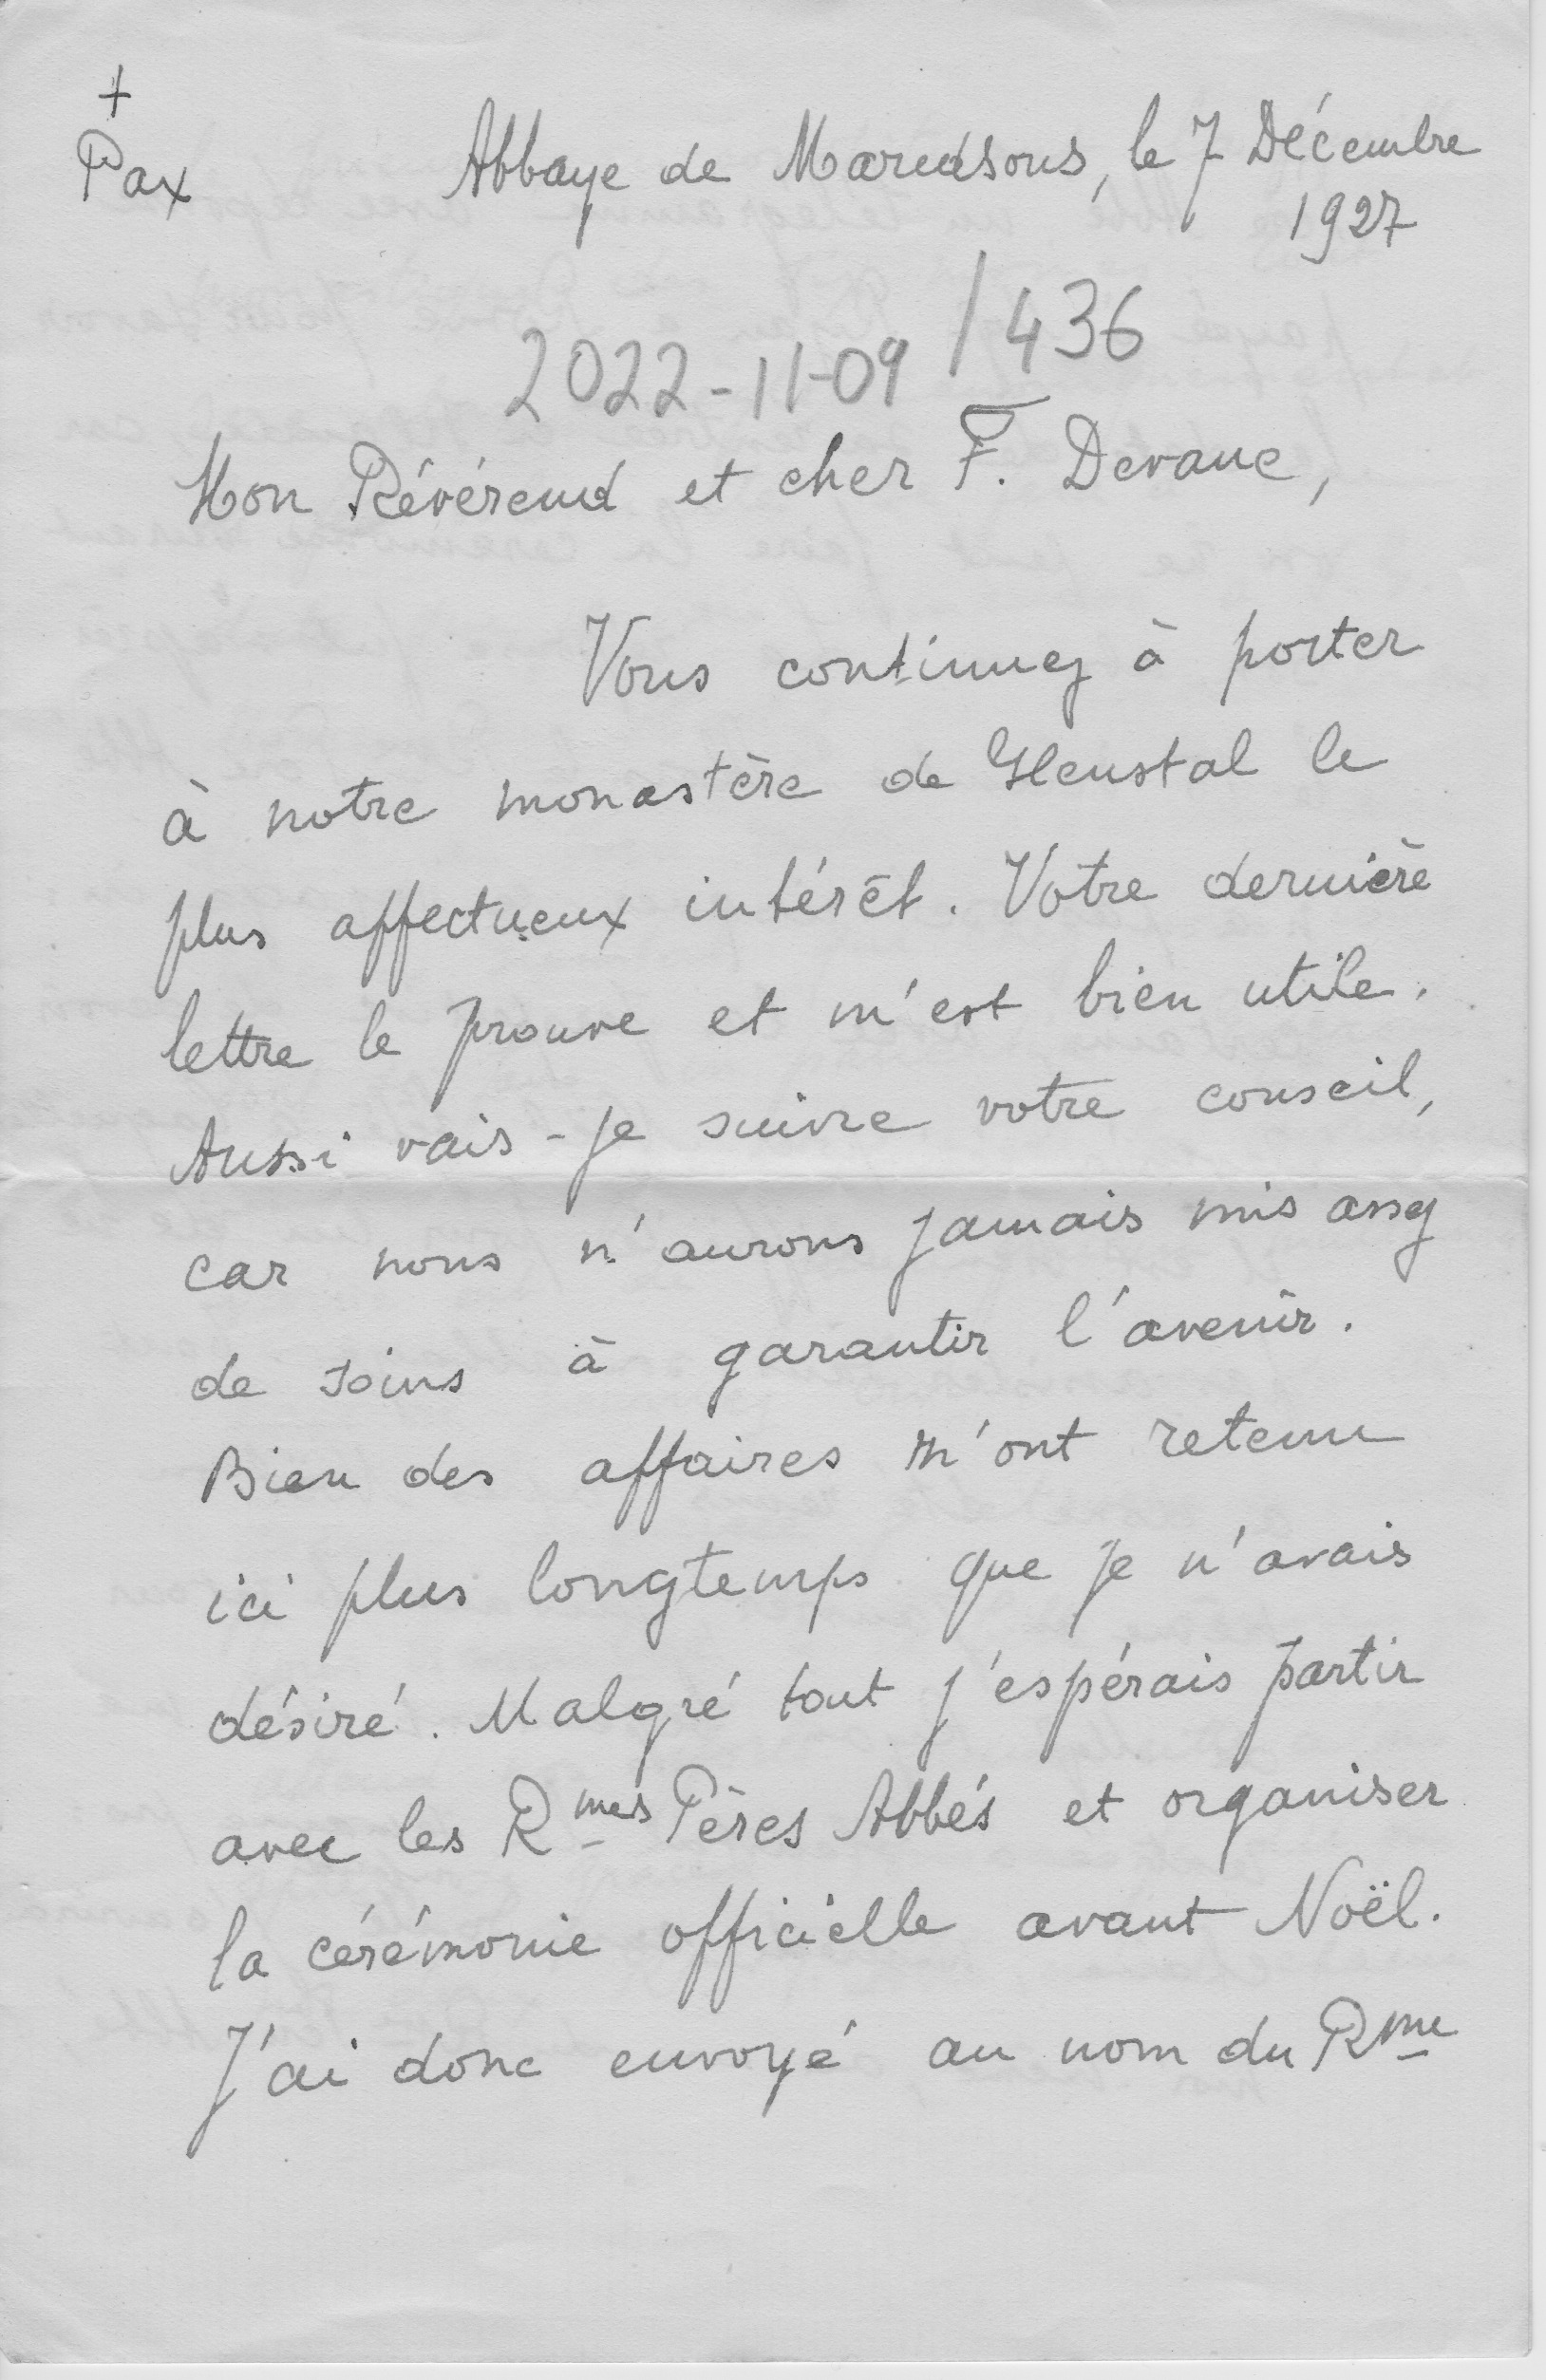 +
Pax
Abbaye de Maredsous, le 7 Décembre
1927
2022-11-09 / 436
Mon Révérend et cher F. Devane,
Vous continuez à porter
à notre monastère de Glenstal le
plus affectueux intérêt. Votre dernière
lettre le prouve et m'est bien utile.
Aussi vais-je suivre votre conseil,
car nous n'aurons jamais mis assez
de soins à garantir l'avenir.
Bien des affaires m'ont retenu
ici plus longtemps que je n'avais
désiré. Malgré tout j'espérais partir
avec les Rmes Pères Abbés et organiser
la cérémonie officielle avant Noël.
J'ai donc envoyé au nom du Rme